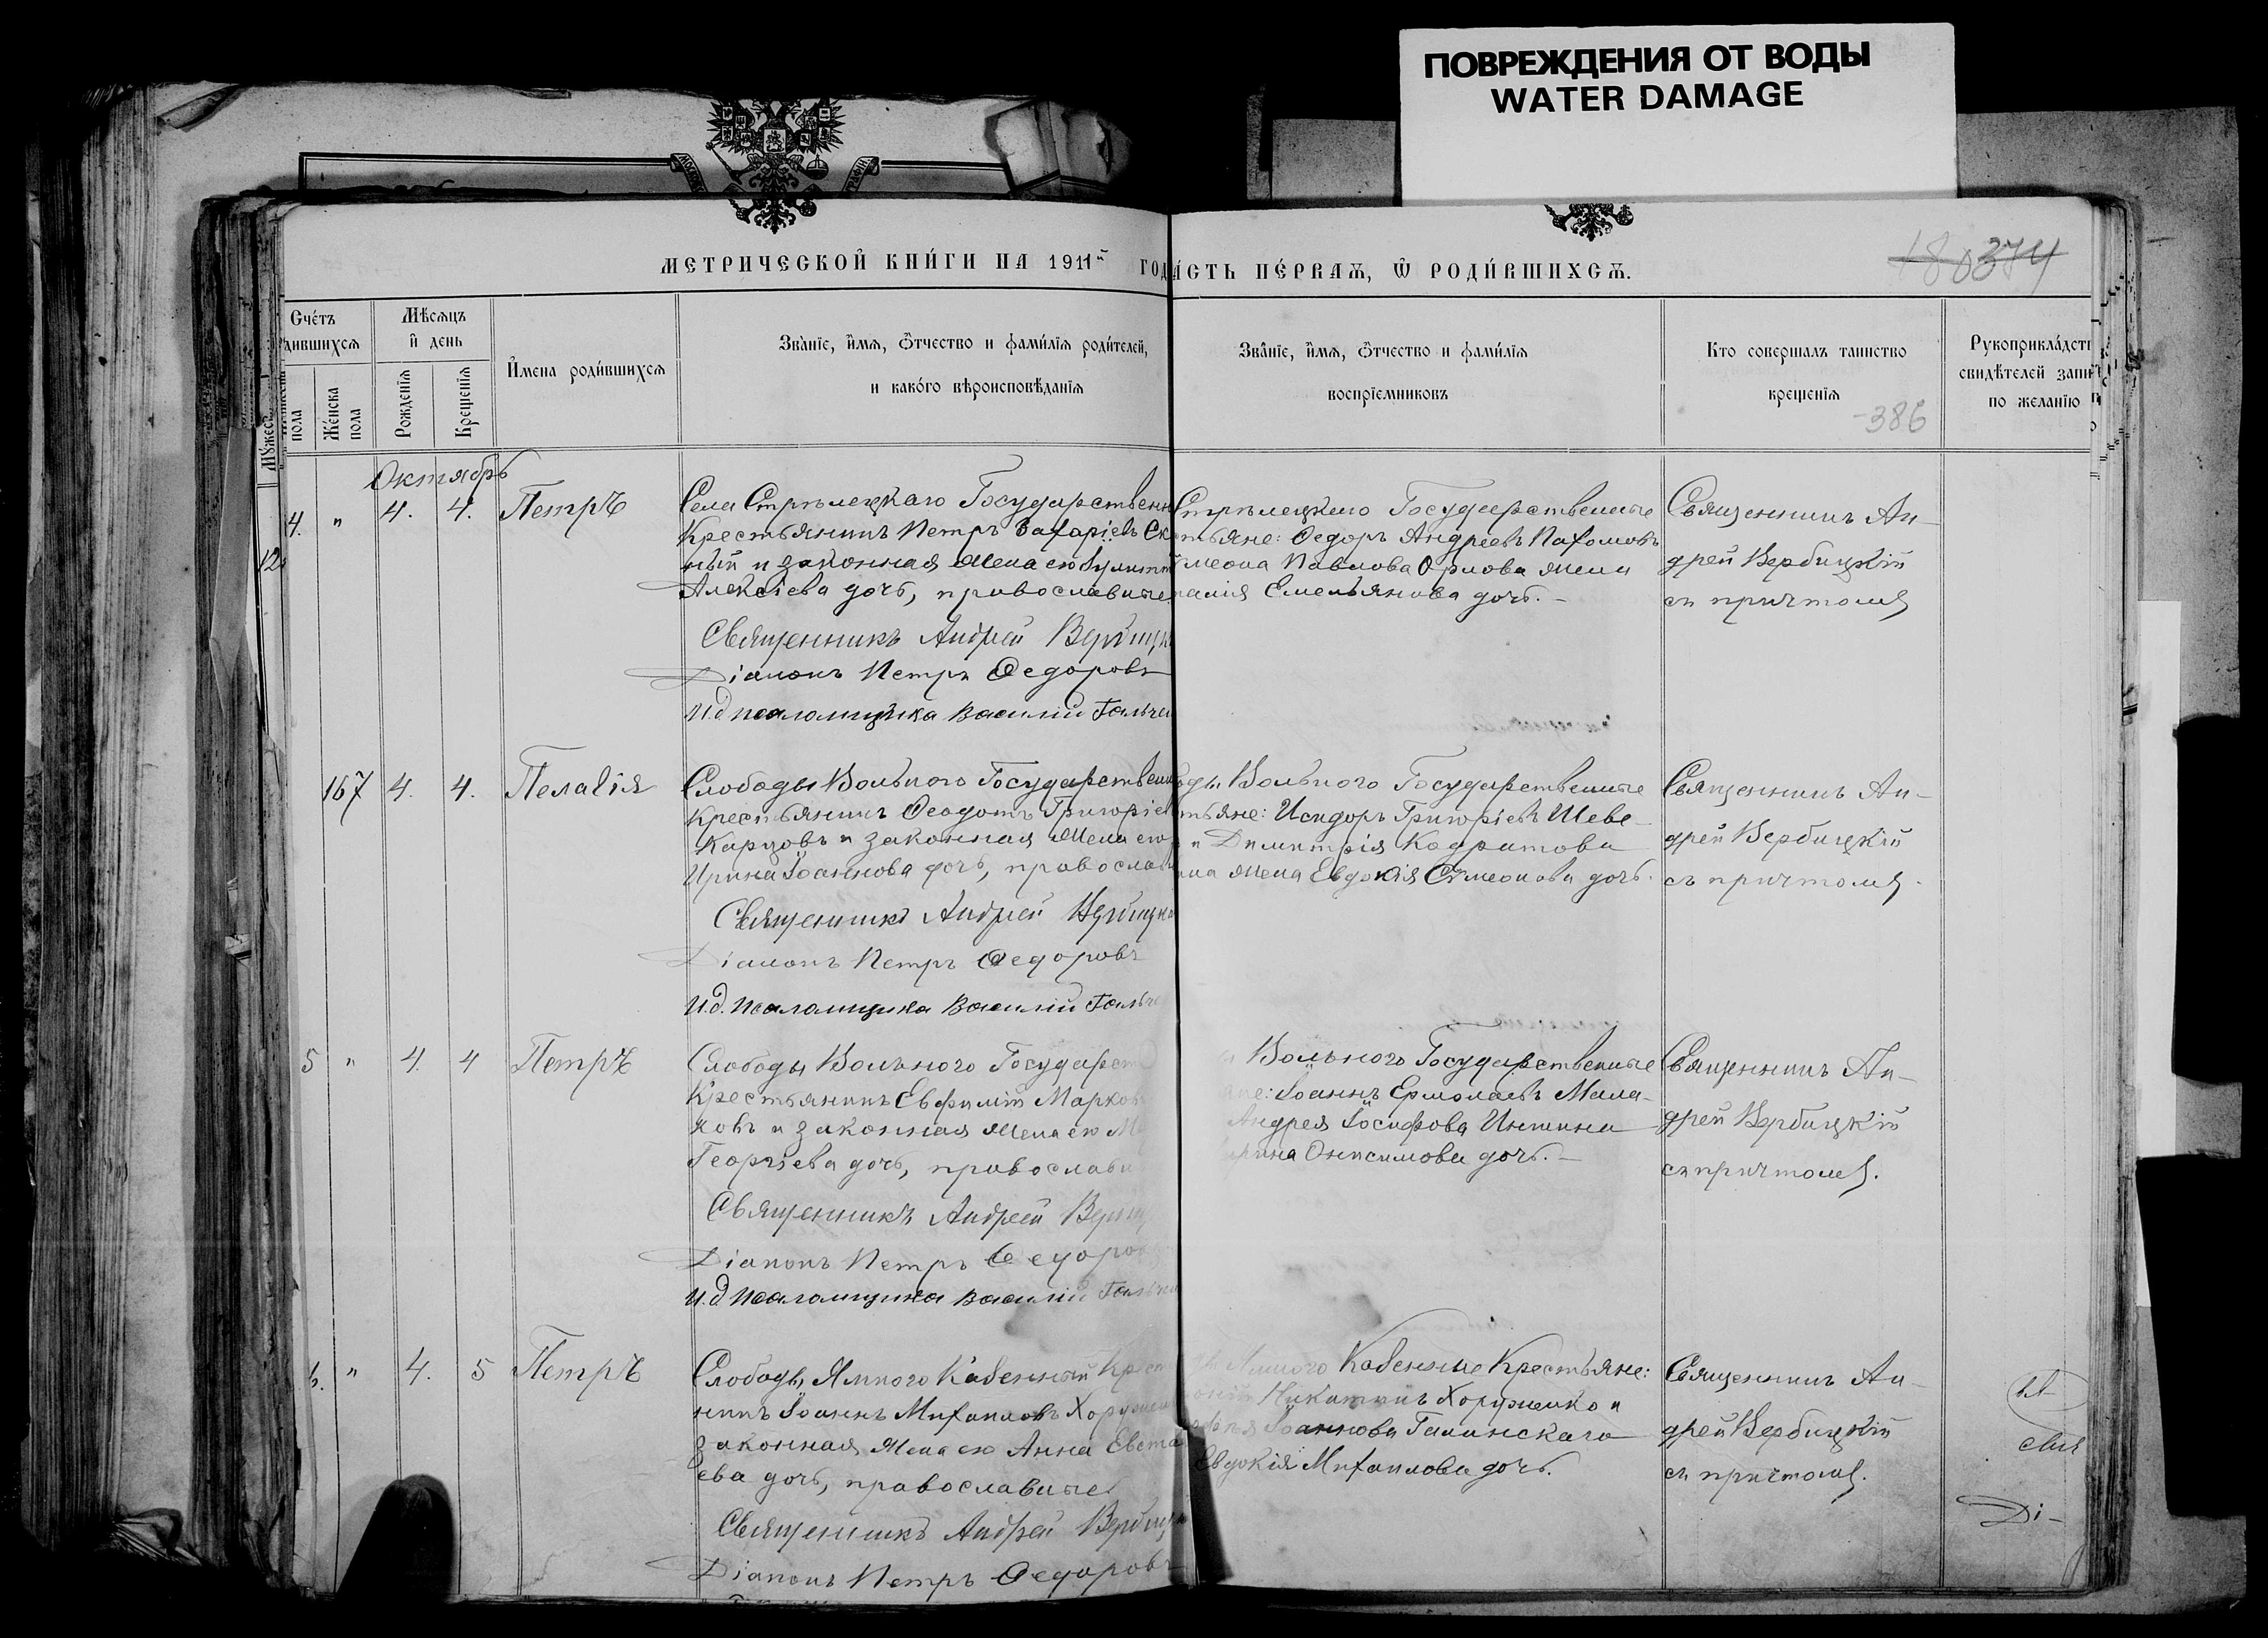 ПОВРЕЖДЕНИЯ ОТ ВОДЫ
WATER DAMAGE
МЕТРИЧЕСКОЙ КНИГИ НА 1911й ГОД
АСТЬ ПЕРВАѦ, Ѿ РОДИВШИХСѦ.
374
Счетъ
дившихсѧ
Мѣсѧцъ
и день
Имена родившихсѧ
Званіе, имѧ, отчество и фамиліѧ родителей,
и какого вѣроисповѣданіѧ
Мужес
пола
Женска
пола
Рожденіѧ
Крещеніѧ
Званіе, имѧ, отчество и фамиліѧ
воспріемниковъ
Кто совершалъ таинство
крещеніѧ
Рукоприкладст
свидѣтелей запи
по желанію
386
Октябрь
4. " 4. 4. Петръ
Села Стрѣлецкаго Государственн
Крестьянинъ Петръ Захаріевъ Ск
ный и законная жена его
Алексіева дочь, православные
Священникъ Андрей Вербицк
Діаконъ Петръ Ѳедоровъ
И.д. псаломщика Василій Гальче
Стрѣлецкаго Государственные
стьяне: Ѳедоръ Андреевъ Пахомовъ
Симеона Павлова Орлова жена
Емельянова дочь.
Священникъ Ан-
дрей Вербицкій
съ причтомъ
167 4. 4. Пелагія
Слободы Вольного Государственн
Крестьянинъ Ѳеодотъ Григоріев
Карцовъ и законная жена его
Ирина Іоаннова дочь, православ
Священникъ Андрей Вербицк
Діаконъ Петръ Ѳедоровъ
И.д. псаломщика Василій Гальче
ды Вольного Государственные
тьяне: Исидоръ Григоріевъ Шеве-
и Димитрія Кодратова
жена Евдокія Симеонова дочь.
Священникъ Ан-
дрей Вербицкій
съ причтомъ.
5 " 4. 4 Петръ
Слободы Вольного Государст
Крестьянинъ Евфимій Марков
ковъ и законная жена его М
Георгіева дочь, православн
Священникъ Андрей Верби
Діаконъ Петръ Ѳедоров
И.д. псаломщика Василій Гальче
Вольного Государственные
Іоаннъ Ермолаевъ Мала-
Андрея Іосифова Иншина
Онисимова дочь.
Священникъ Ан-
дрей Вербицкій
съ причтомъ.
" 4. 5 Петръ
Слободы Ямного Казенный Крест
нинъ Іоаннъ Михаиловъ Хоружен
законная жена его Анна Евста
ева дочь, православные
Священникъ Андрей Вербицк
Діаконъ Петръ Ѳедоровъ
Ямного Казенные Крестьяне:
Никитинъ Хоруженко и
Іоаннова Галинскаго
Евдокія Михаилова дочь.
Священникъ Ан-
дрей Вербицкій
съ причтомъ.
Ді-